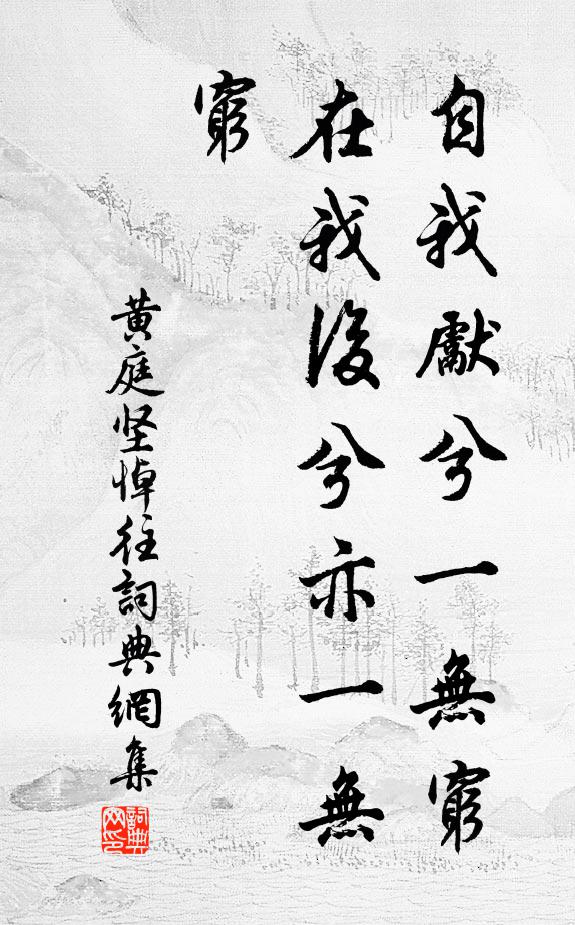 自我獻兮一無窮
在我後兮亦一無
窮
黃庭坚悼往詞典網集
詞典
网印